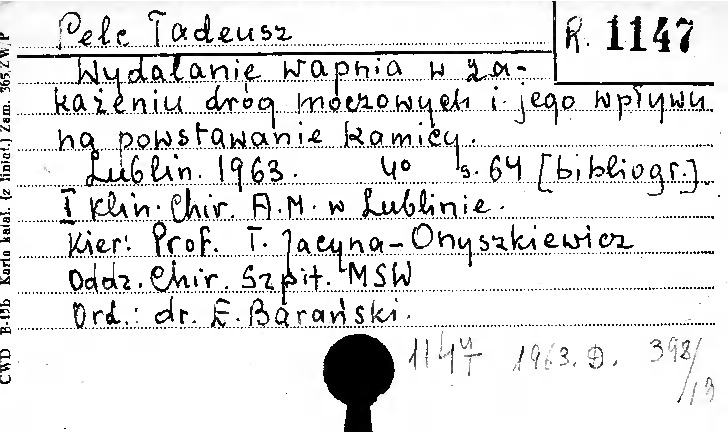 Pelc Tadeusz
R. 1147
Wydalanie wapnia w za-
każeniu dróg moczowych i jego wpływu
na powstawanie kamicy.
Lublin. 1963. 4° s. 64 [bibliogr.]
I Klin. Chir. A.M. w Lublinie.
Kier: Prof. T. Jacyna-Onyszkiewicz
Oddz. Chir. Szpit. MSW
Ord.: dr. E. Barański.
1963. D. 398/13
CWD B-13b Karta katal. (z liniat.) Zam. 365/ZW/P